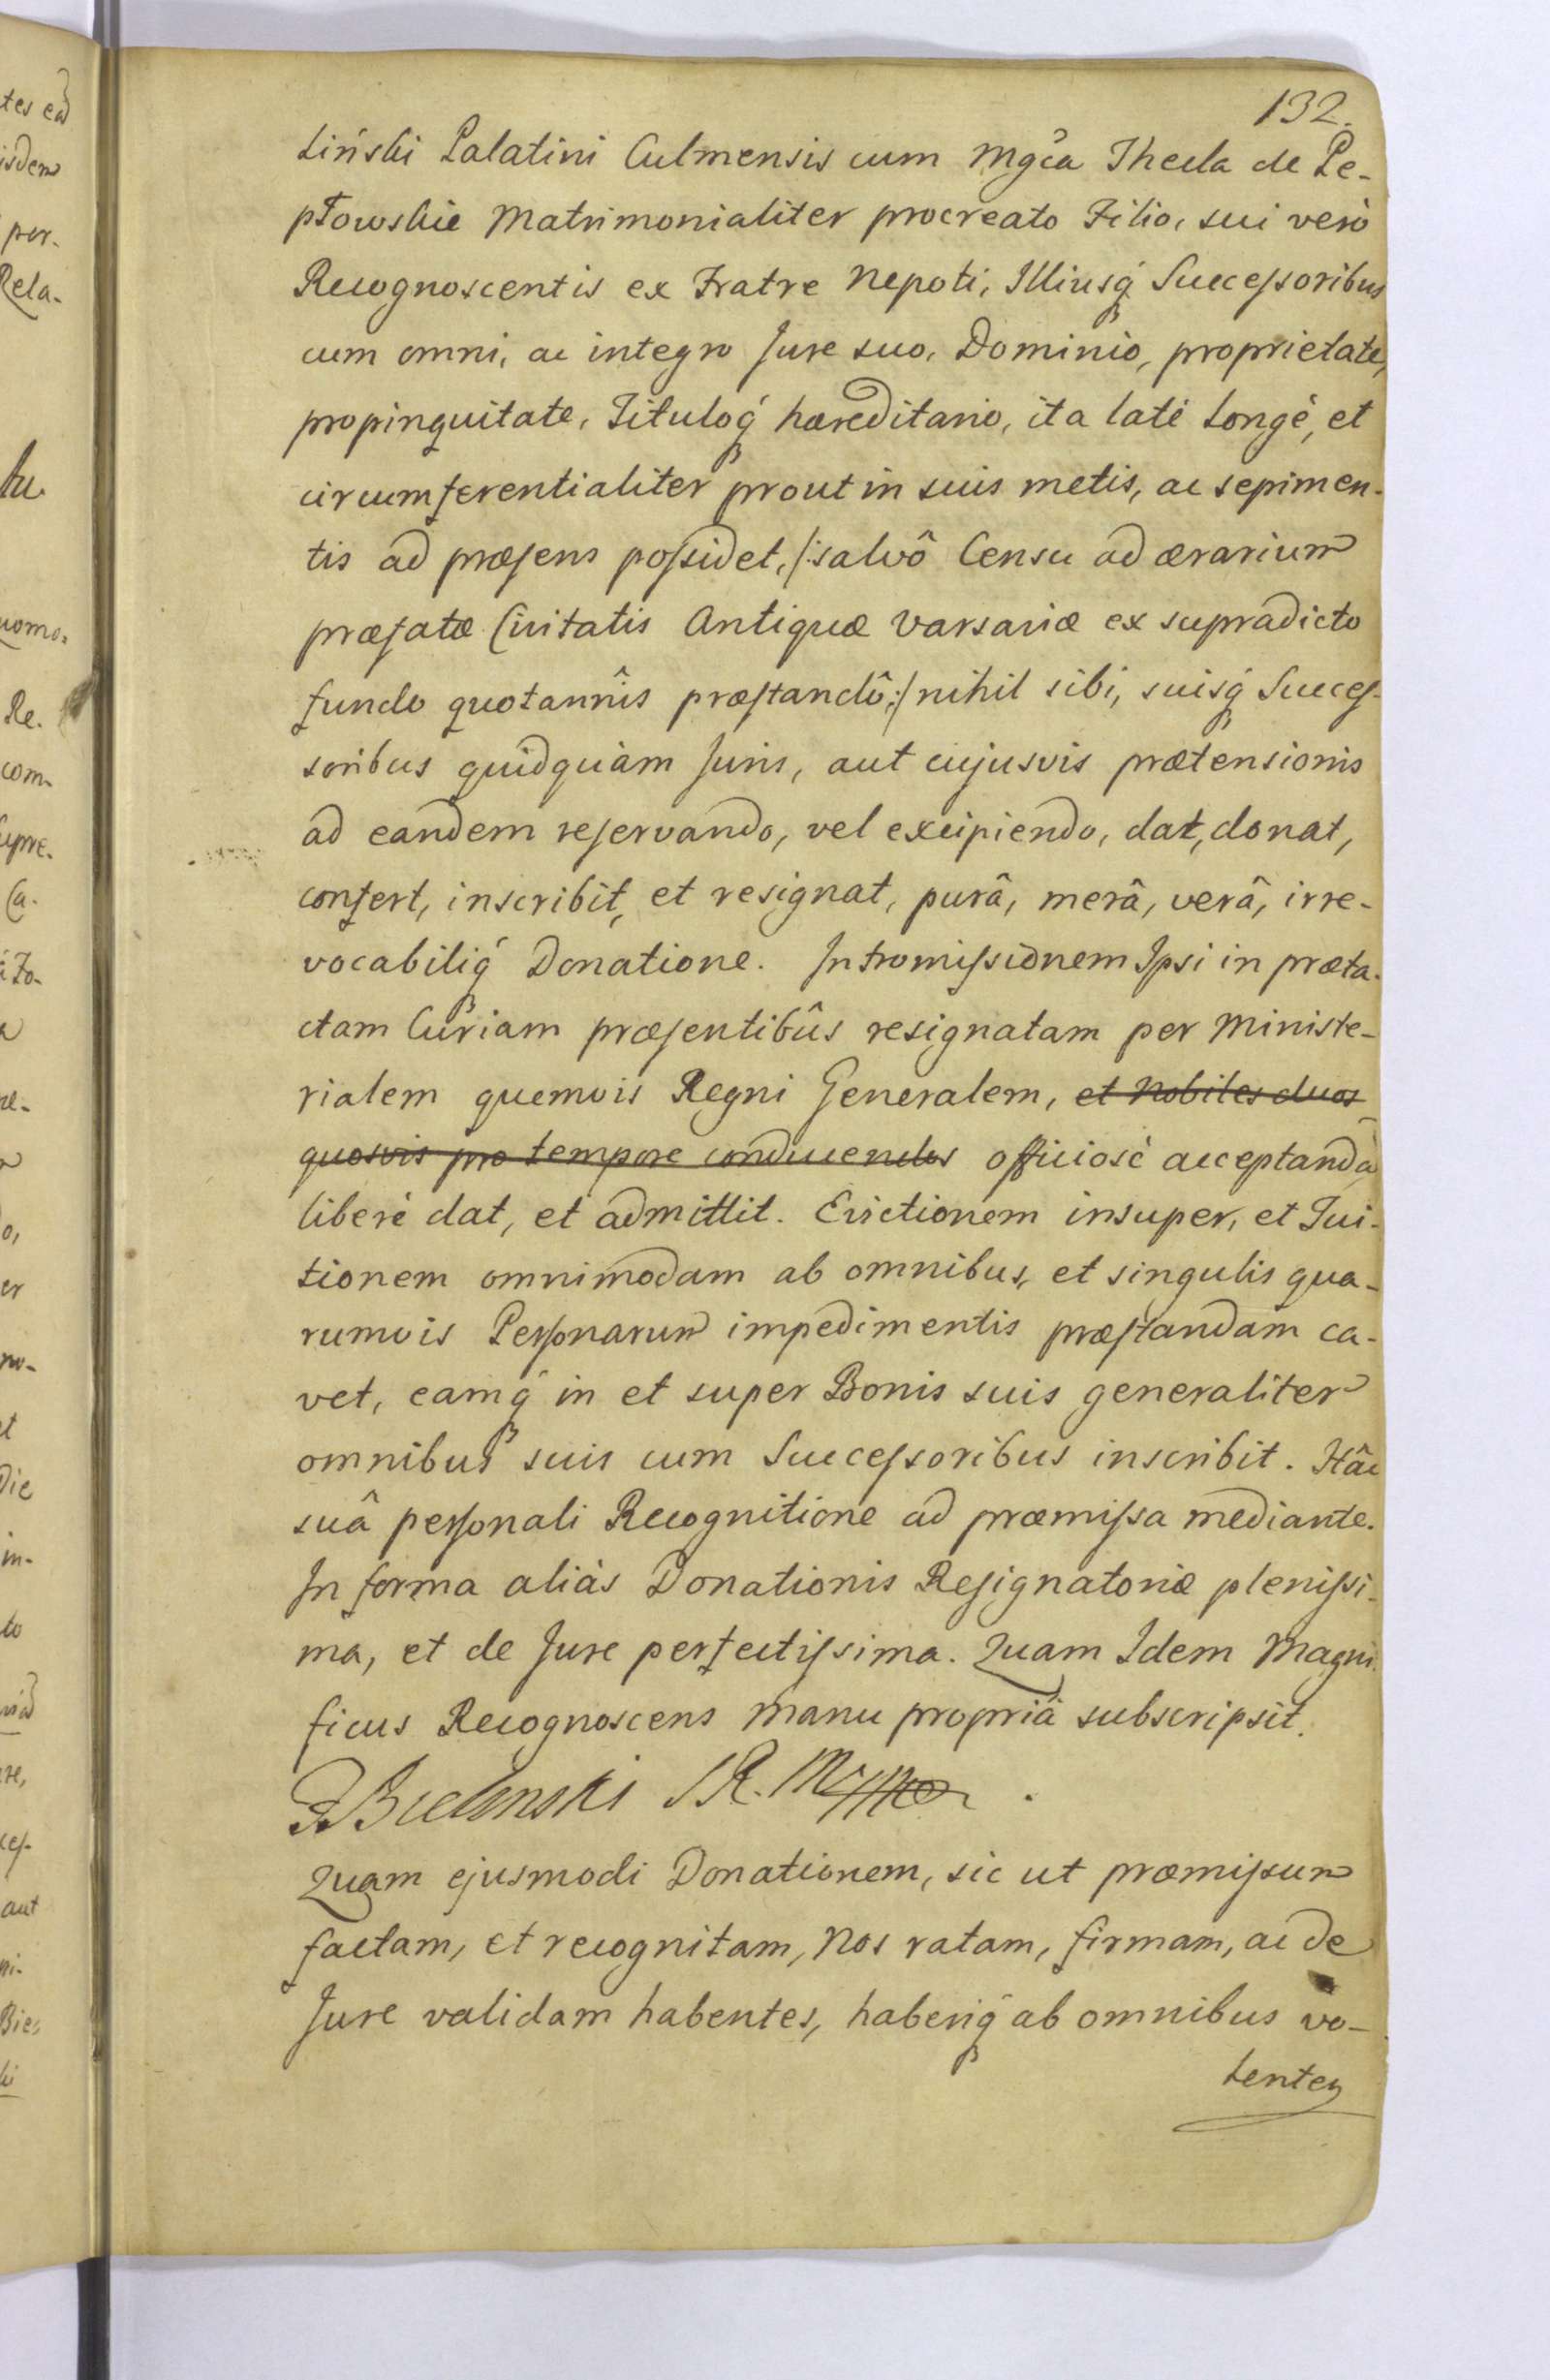 132.
liński Palatini Culmensis cum Mgca Thecla de Pe-
płowskie Matrimonialiter procreato Filio, sui verò
Recognoscentis ex Fratre Nepoti, Illiusq́ Successoribus
cum omni, ac integro Jure suo, Dominio, proprietate,
propinquitate, Tituloq́ hæreditario, ita latè longè, et
circumferentialiter prout in suis metis, ac sepimen-
tis ad præsens possidet, /:salvô Censu ad ærarium
præfatæ Civitatis Antiquæ Varsaviæ ex supradicto
fundo quotannîs præstandô:/ nihil sibi, suisq́ Succes-
soribus quidquàm Juris, aut cujusvis prætensionis
ad eandem reservando, vel excipiendo, dat, donat,
confert, inscribit, et resignat, purâ, merâ, verâ, irre-
vocabiliq́ Donatione. Intromissionem Ipsi in præta-
ctam Curiam præsentibûs resignatam per Ministe-
rialem quemvis Regni Generalem, et Nobiles duos
quosvis pro tempore conducendos officiosè acceptandã
liberè dat, et admittit. Evictionem insuper, et Tui-
tionem omnimodam ab omnibus, et singulis qua-
rumvis Personarum impedimentis præstandam ca-
vet, eamq́ in et super Bonis suis generaliter
omnibus suis cum Successoribus inscribit. Hâc
suâ personali Recognitione ad præmissa mediante.
In forma aliàs Donationis Resignatoriæ plenissi-
ma, et de Jure perfectissima. Quam Idem Magni-
ficus Recognoscens manu propriâ subscripsit.
Bielinski
Quam ejusmodi Donationem, sic ut præmissum
factam, et recognitam, Nos ratam, firmam, ac de
Jure validam habentes, haberiq́ ab omnibus vo-
lentes
tes ead
isdem
per-
Rela-
uomo-
Re.
com-
Ca-
er
et
in-
to
aut
ni-
Bie-